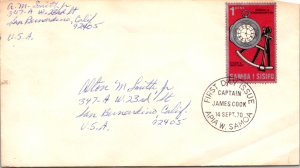 A. M. Smith Jr
347-A W. 23rd St
San Bernardino, Calif
92405
U.S.A.
1
SAMOA I SISIFO
FIRST DAY OF ISSUE
CAPTAIN
JAMES COOK
14 SEPT. 70
APIA, W. SAMOA
Alton M. Smith, Jr
347-A W. 23rd St
San Bernardino Calif.
U.S.A. 92405